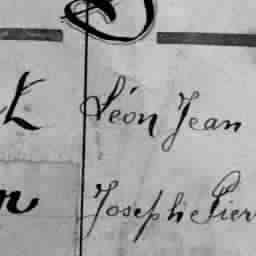 Léon Jean
Joseph Pier